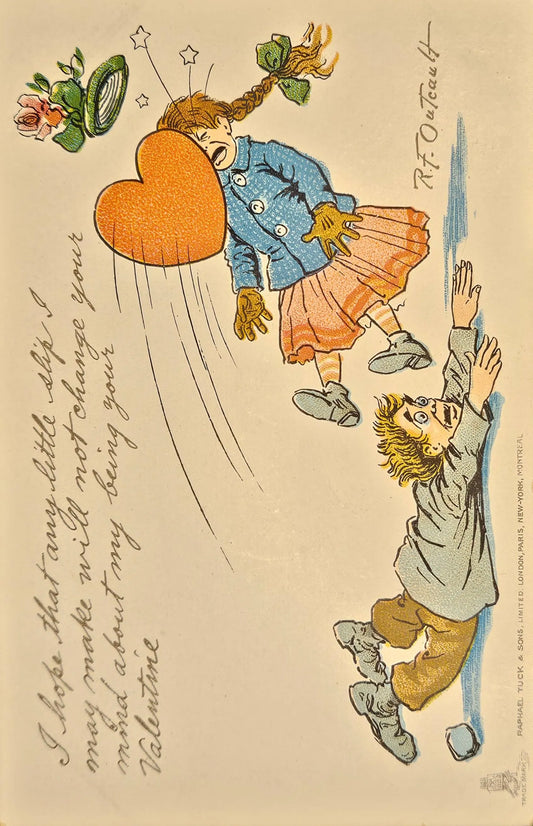 I hope that any little slip I
may make will not change your
mind about my being your
Valentine
R.F. Outcault
RAPHAEL TUCK & SONS, LIMITED. LONDON, PARIS, NEW-YORK, MONTREAL
TRADE MARK